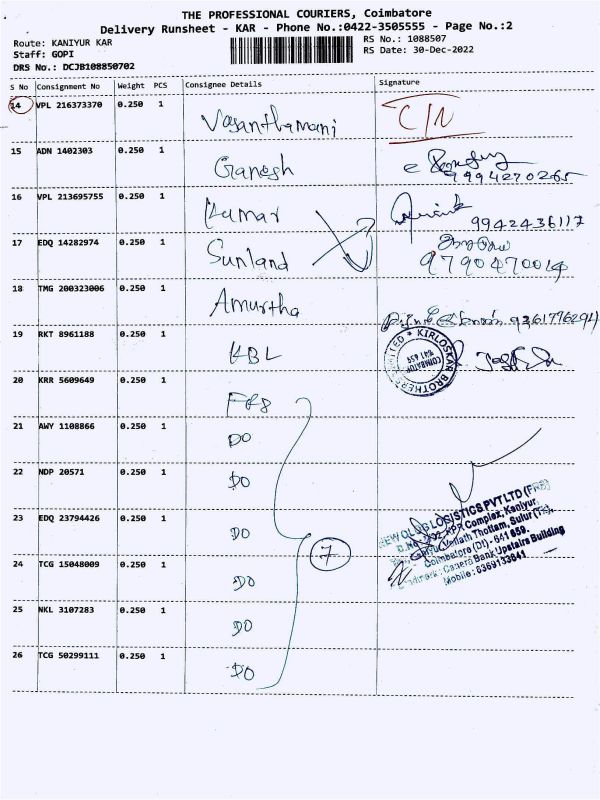 THE PROFESSIONAL COURIERS, Coimbatore
Delivery Runsheet - KAR - Phone No.:0422-3505555 - Page No.:2
Route: KANIYUR KAR
RS No.: 1088507
Staff: GOPI
RS Date: 30-Dec-2022
DRS No.: DCJB108850702
S No Consignment No Weight PCS Consignee Details Signature
14 VPL 216373370 0.250 1 Vasanthamani C/N
15 ADN 1402303 0.250 1 Ganesh
9994270265
16 VPL 213695755 0.250 1 Kumar
9942436117
17 EDQ 14282974 0.250 1 Sunland
9790470014
18 TMG 200323006 0.250 1 Amurtha
19 RKT 8961188 0.250 1 KBL
KIRLOSKAR BROTHERS LIMITED
COIMBATORE
641 659
20 KRR 5609649 0.250 1
21 AWY 1108866 0.250 1 DO
22 NDP 20571 0.250 1 DO
23 EDQ 23794426 0.250 1 DO
7
NEW OLOG LOGISTICS PVT LTD (FRS)
KPR Complex, Kaniyur,
Thottam, Sulur (TK),
Coimbatore (Dt) - 641 659.
Landmark: Canera Bank Upstairs Building
Mobile: 6369133641
24 TCG 15048009 0.250 1 DO
25 NKL 3107283 0.250 1 DO
26 TCG 50299111 0.250 1 DO